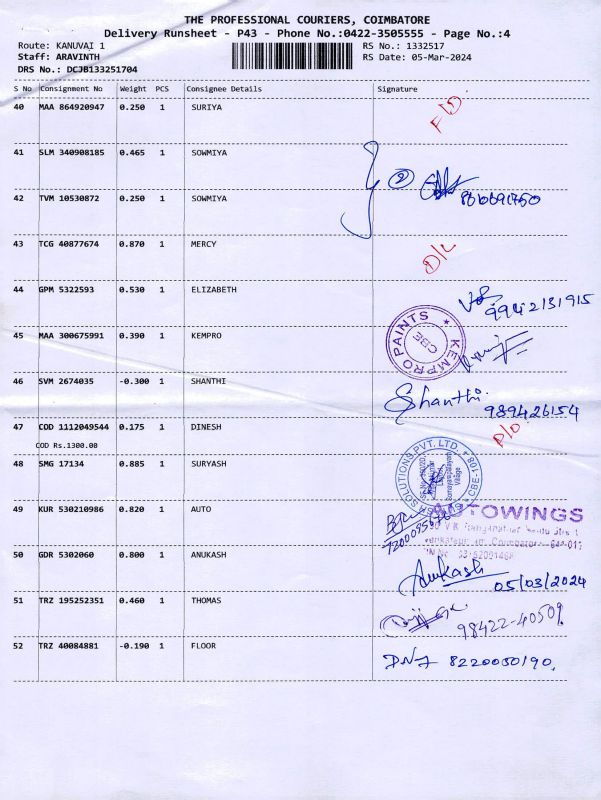 THE PROFESSIONAL COURIERS, COIMBATORE
Delivery Runsheet - P43 - Phone No.:0422-3505555 - Page No.:4
Route: KANUVAI 1
RS No.: 1332517
Staff: ARAVINTH
RS Date: 05-Mar-2024
DRS No.: DCJB133251704
S No Consignment No Weight PCS Consignee Details Signature
40 MAA 864920947 0.250 1 SURIYA
41 SLM 340908185 0.465 1 SOWMIYA
42 TVM 10530872 0.250 1 SOWMIYA
43 TCG 40877674 0.870 1 MERCY D/L
44 GPM 5322593 0.530 1 ELIZABETH
9942131915
45 MAA 300675991 0.390 1 KEMPRO
KEMPRO PAINTS
CBE
46 SVM 2674035 -0.300 1 SHANTHI
Shanthi 989426154
47 COD 1112049544 0.175 1 DINESH
COD Rs.1300.00
48 SMG 17134 0.885 1 SURYASH
SOLUTIONS PVT. LTD.
Village
CBE-108
49 KUR 530210986 0.820 1 AUTO
AUTOWINGS
50 GDR 5302060 0.800 1 ANUKASH
Anukash 05/03/2024
51 TRZ 195252351 0.460 1 THOMAS
98422-40509
52 TRZ 40084881 -0.190 1 FLOOR
8220050190